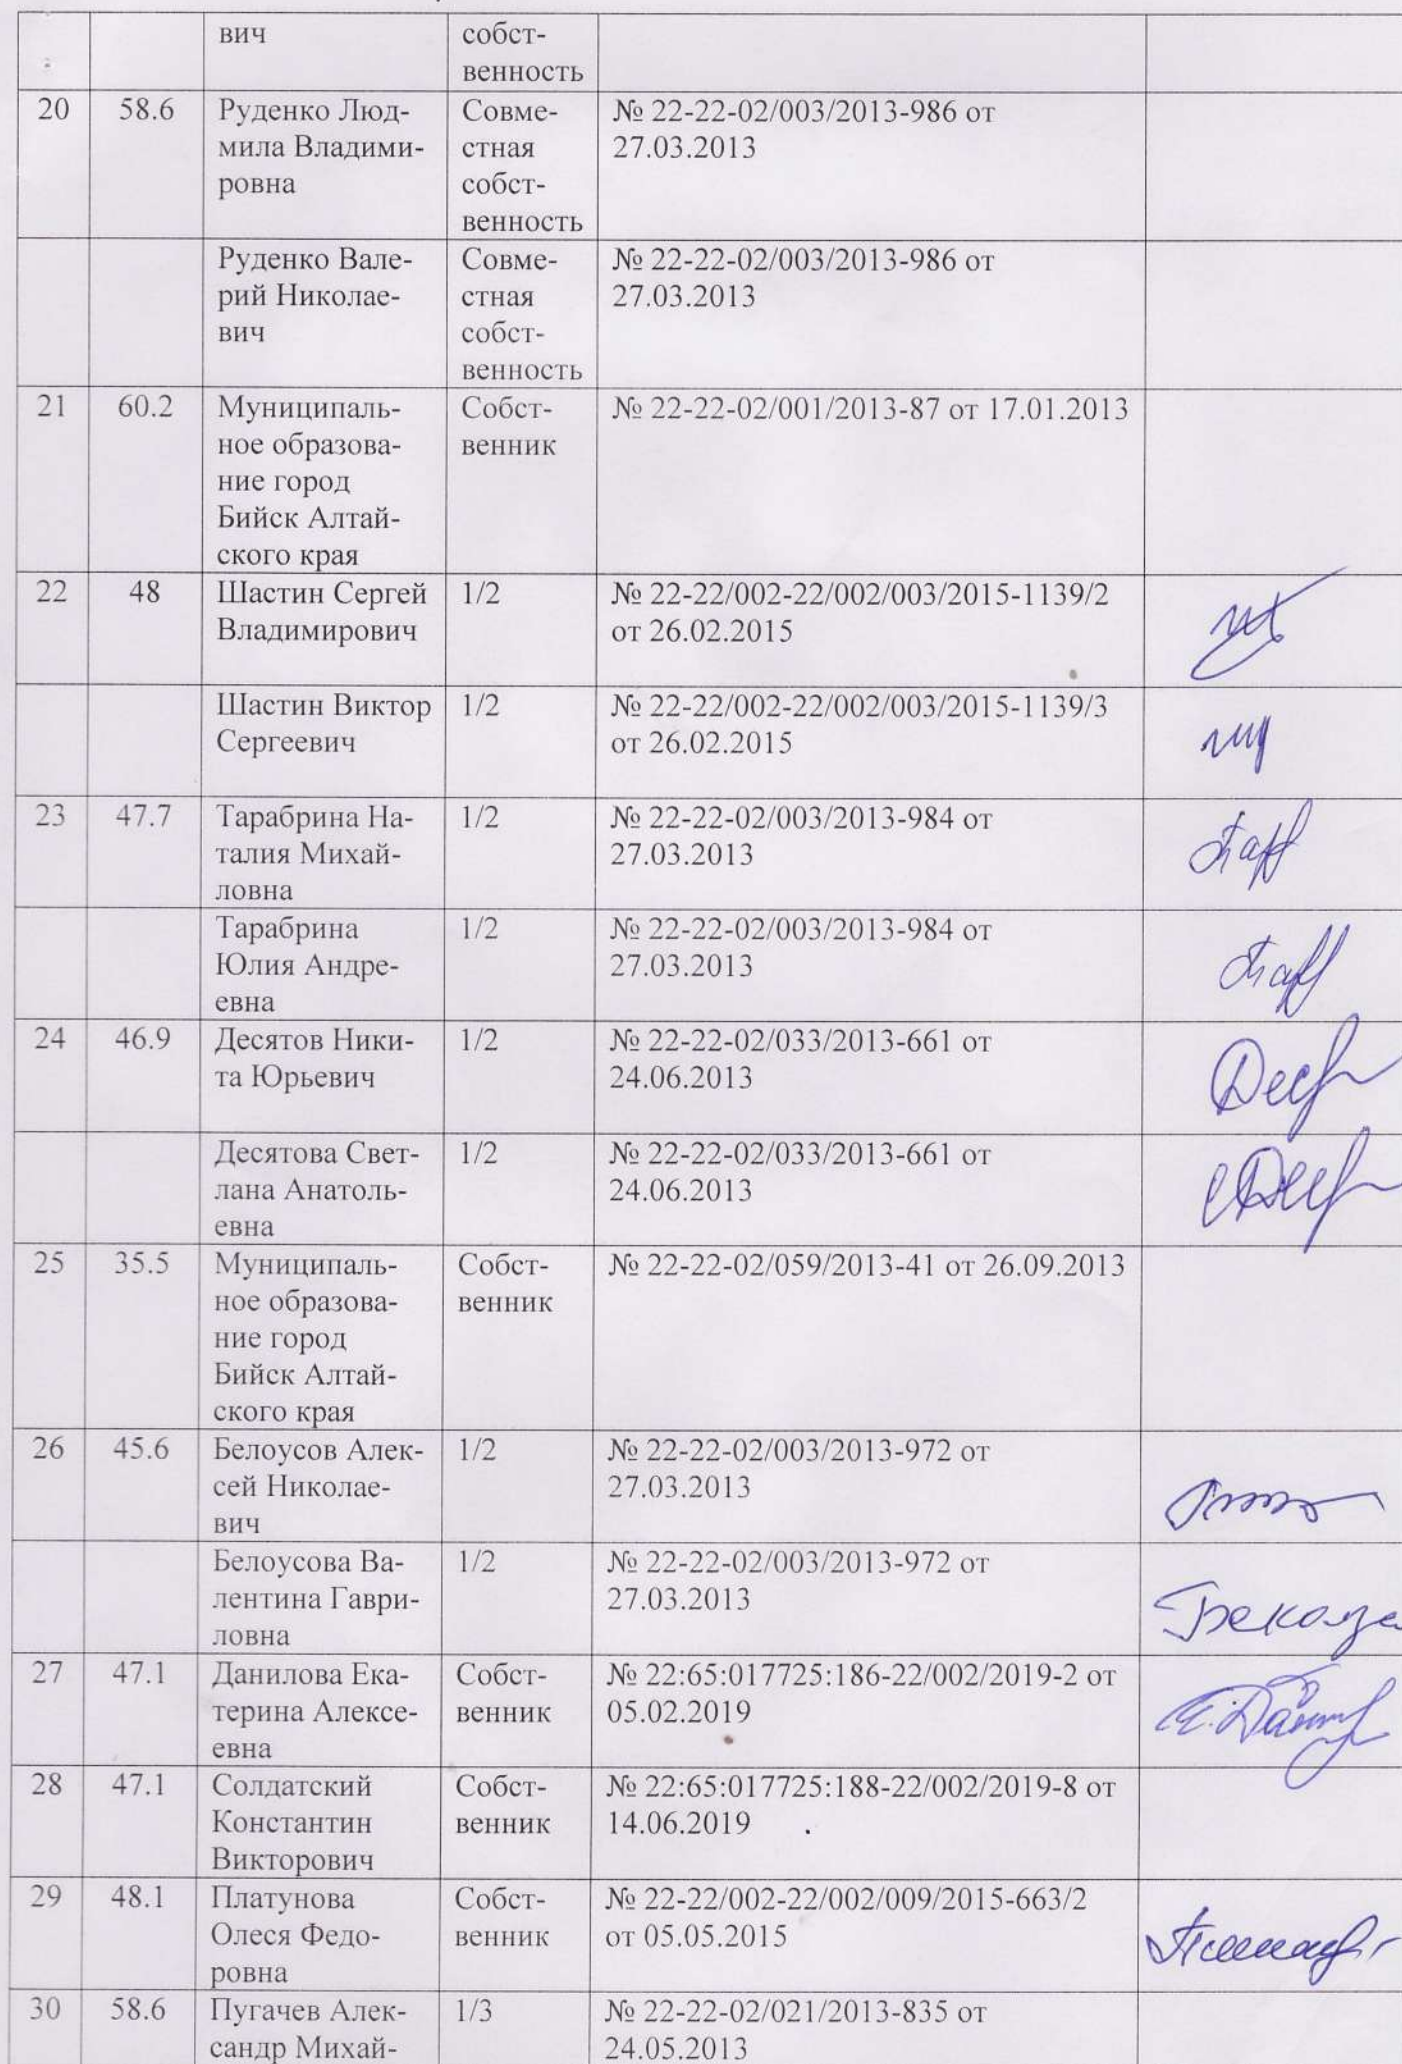 вич
собст-
венность
20 58.6 Руденко Люд-
мила Владими-
ровна
Совме-
стная
собст-
венность
№ 22-22-02/003/2013-986 от
27.03.2013
Руденко Вале-
рий Николае-
вич
Совме-
стная
собст-
венность
№ 22-22-02/003/2013-986 от
27.03.2013
21 60.2 Муниципаль-
ное образова-
ние город
Бийск Алтай-
ского края
Собст-
венник
№ 22-22-02/001/2013-87 от 17.01.2013
22 48 Шастин Сергей
Владимирович
1/2
№ 22-22/002-22/002/003/2015-1139/2
от 26.02.2015
Шастин Виктор
Сергеевич
1/2
№ 22-22/002-22/002/003/2015-1139/3
от 26.02.2015
23 47.7 Тарабрина На-
талия Михай-
ловна
1/2
№ 22-22-02/003/2013-984 от
27.03.2013
Тарабрина
Юлия Андре-
евна
1/2
№ 22-22-02/003/2013-984 от
27.03.2013
24 46.9 Десятов Ники-
та Юрьевич
1/2
№ 22-22-02/033/2013-661 от
24.06.2013
Десятова Свет-
лана Анатоль-
евна
1/2
№ 22-22-02/033/2013-661 от
24.06.2013
25 35.5 Муниципаль-
ное образова-
ние город
Бийск Алтай-
ского края
Собст-
венник
№ 22-22-02/059/2013-41 от 26.09.2013
26 45.6 Белоусов Алек-
сей Николае-
вич
1/2
№ 22-22-02/003/2013-972 от
27.03.2013
Белоусова Ва-
лентина Гаври-
ловна
1/2
№ 22-22-02/003/2013-972 от
27.03.2013
27 47.1 Данилова Ека-
терина Алексе-
евна
Собст-
венник
№ 22:65:017725:186-22/002/2019-2 от
05.02.2019
28 47.1 Солдатский
Константин
Викторович
Собст-
венник
№ 22:65:017725:188-22/002/2019-8 от
14.06.2019
29 48.1 Платунова
Олеся Федо-
ровна
Собст-
венник
№ 22-22/002-22/002/009/2015-663/2
от 05.05.2015
30 58.6 Пугачев Алек-
сандр Михай-
1/3
№ 22-22-02/021/2013-835 от
24.05.2013